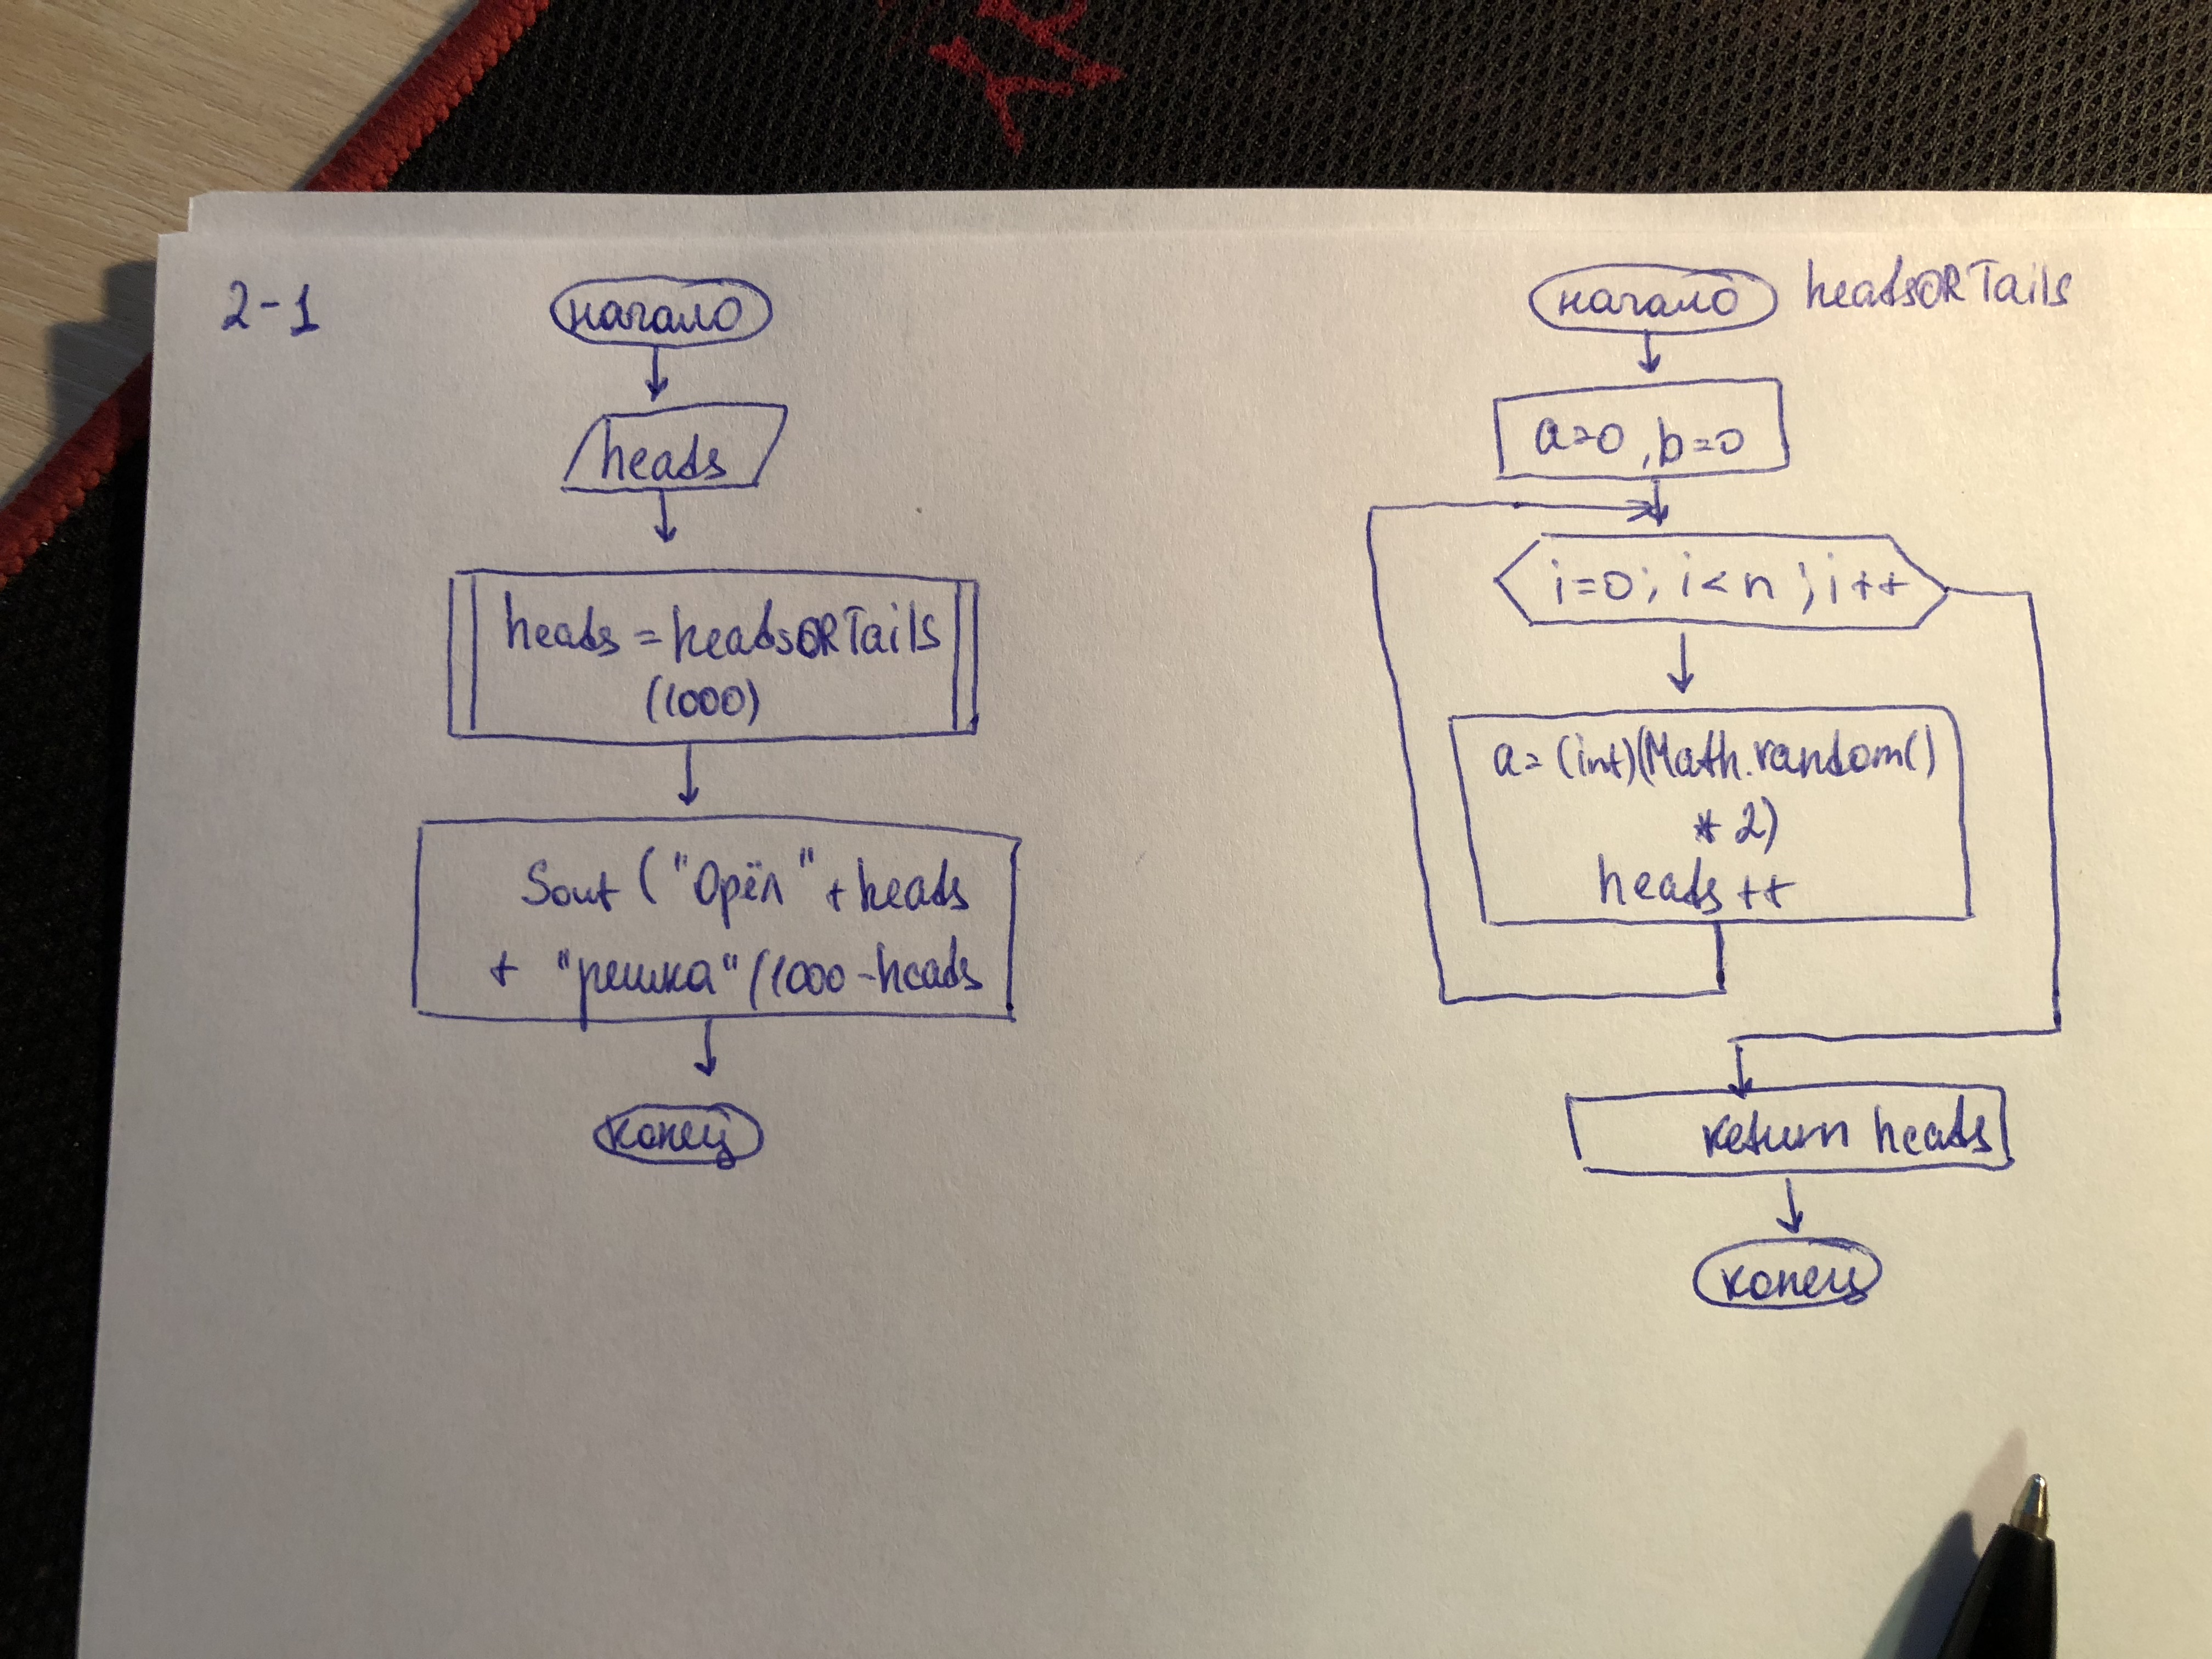 2-1
начало
heads
heads = headsORTails
(1000)
Sout ("Орёл" + heads
+ "решка" (1000 - heads
конец
начало headsORTails
a=0, b=0
i=0; i<n; i++
a= (int)(Math.random()
* 2)
heads ++
return heads
конец